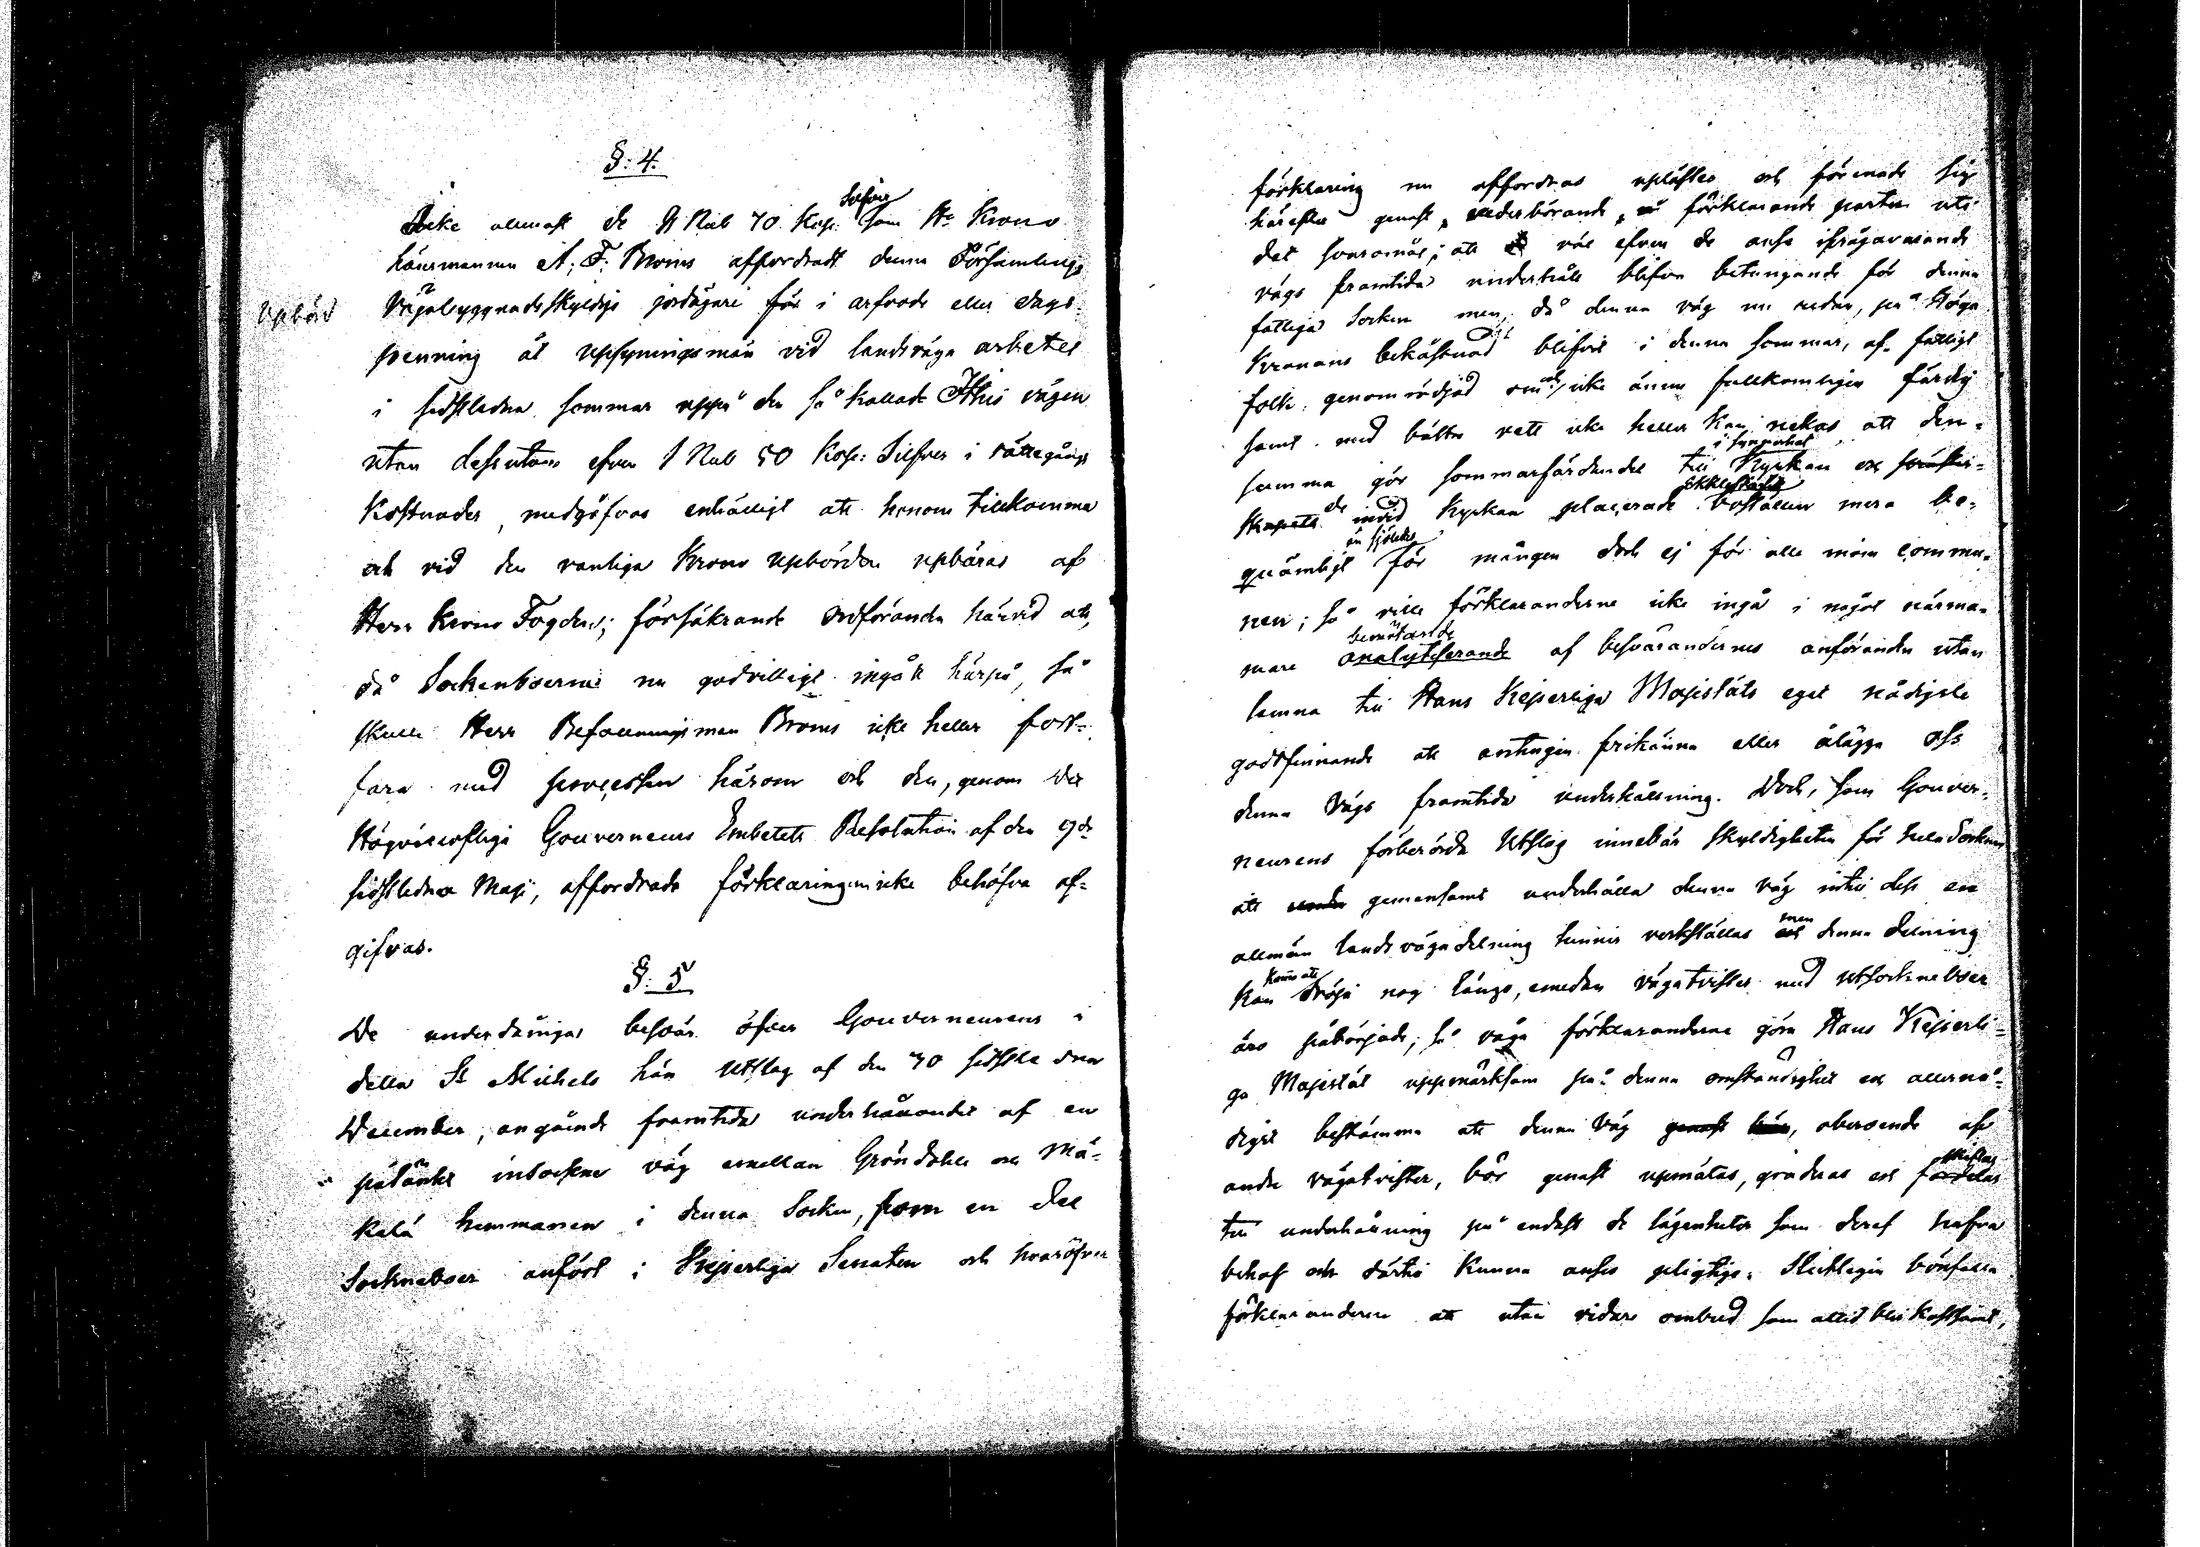 §: 4.
Icke allenast de 9 Rub 70 Kop: Silfver som Hr Krono
länsmannen A; F: Broms affordradt denna Församlings
Upbörd
Vägabyggnadsskyldige jordägare för i arfvode eller dags-
penning åt uppsyningsmän vid landsväga arbetet
i sidstledna sommar uppå den så kallade Ihis vägen
utan dessutom efven 1 Rub 50 Kop: Silfver i rättegångs
Kostnader, medgåfvos enhälligt att honom tillkomma
och vid den vanliga Krono Upbörden upbäras af
Herr Krono Fogden; försäkrande ordföranden härvid att,
då Sockenboerne nu godvilligt ingått härpå, så
skulle Herr Befallningsman Broms icke heller fort-
fara med processen härom och den, genom det
Högvälloflige Gouverneurs Embetets Resolution af den
sidstledne Maji, affordrade förklaringen icke behöfva af-
gifvas.
§: 5
De underdåniga besvär öfver Gouverneurens i
detta St Michels Län Utslag af den 30 sidstledna
December, angående framtida underhållandet af en
påtänkt insockne väg emellan Gröndahls och Mä-
kelä hemmanen i denna Socken, som en del
Sockneboer anfört i Kejserliga Senaten och hvaröfver
förklaring nu affordras uplästes och förenade sig
härefter genast vederbörande förklarande parter uti
det svaromål; att väl efven de anse ifrågavarande
vägs framtida underhåll blifva betungande för denna
fattiga Socken men, då denna väg nu redan, på Höga
Kronans bekåstnad blifvit i denna sommar, af fattigt
folk genomrödjad om och icke ännu fullkomligen färdig
samt med bättre rätt icke heller kan nekas att den-
samma gör sommarfärdandet till i synnerhet Kyrkan och
de invid Kyrkan placerade Ecklesiastik Boställen mera be-
quämligt än sjöledes för mången doch ej för alle inom commu-
nen; så ville förklaranderne icke ingå i något närma-
mare bemötande analyserande af besvärandernes anföranden utan
lemna till Hans Kejserliga Majestäts eget nådigste
godtfinnande att antingen frikänna eller ålägga oss
denna Vägs framtida underhållning. Doch, som Gouver-
neurens förberörda Utslag innebär skyldigheten för hela Socknen
att gemensamt underhålla denna väg intill dess en
allmän landsvägadelning hunnit verkställas men denna delning
kan komma att dröja nog länge, emedan vägatvister med utsockneboer
äro påbörjade; så våga förklaranderne göra Hans Kejserli-
ga Majestät uppmärksam på denna omständighet och allernå-
digst bestämma att denna Väg genast här, oberoende af
andra vägatvister, bör genast upmätas, graderas och skiftas fördelas
till underhållning på endast de lägenheter som deraf hafva
behof och dertill kunna anses pligtige. Slutligen bönfalla
förklaranderne att utan vidare ombud som alltid blir kostsamt,